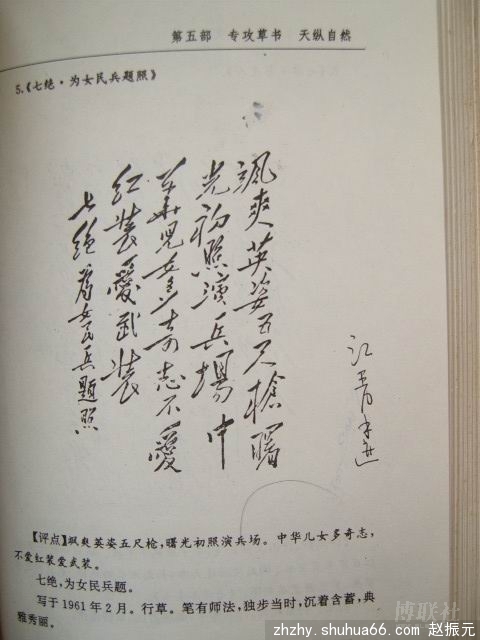 第五部　专攻草书　天纵自然
5.《七绝·为女民兵题照》
颯爽英姿五尺槍曙
光初照演兵場中
華児女多奇志不愛
红裝愛武裝
七绝為女民兵題照
江青
【评点】飒爽英姿五尺枪，曙光初照演兵场。中华儿女多奇志，
不爱红装爱武装。
七绝，为女民兵题。
写于1961年2月。行草。笔有师法，独步当时，沉着含蓄，典
雅秀丽。
博联社
zhzhy.shuhua66.com 赵振元